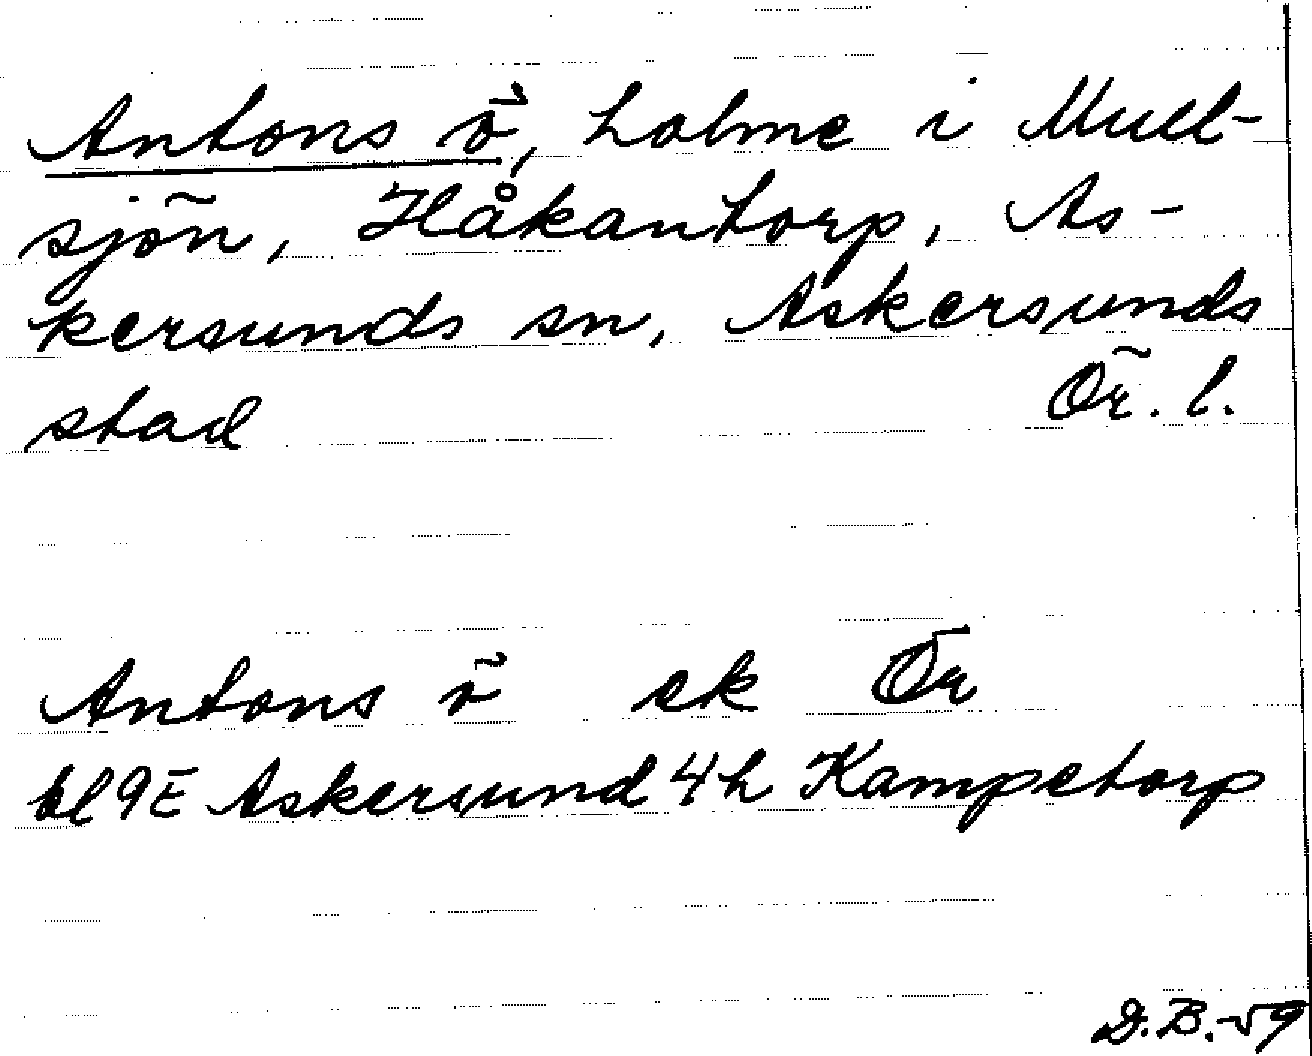 Antons ö, holme i Mull-
sjön, Håkantorp, As-
kersunds sn, Askersunds
stad Ör. l.
Antons ö ek Ör
bl 9E Askersund 4h Kampetorp
D.B.-59